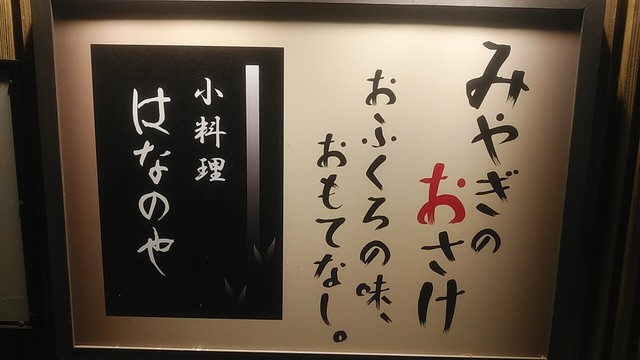 みやぎの
おさけ
おふくろの味、
おもてなし。
小料理
はなのや